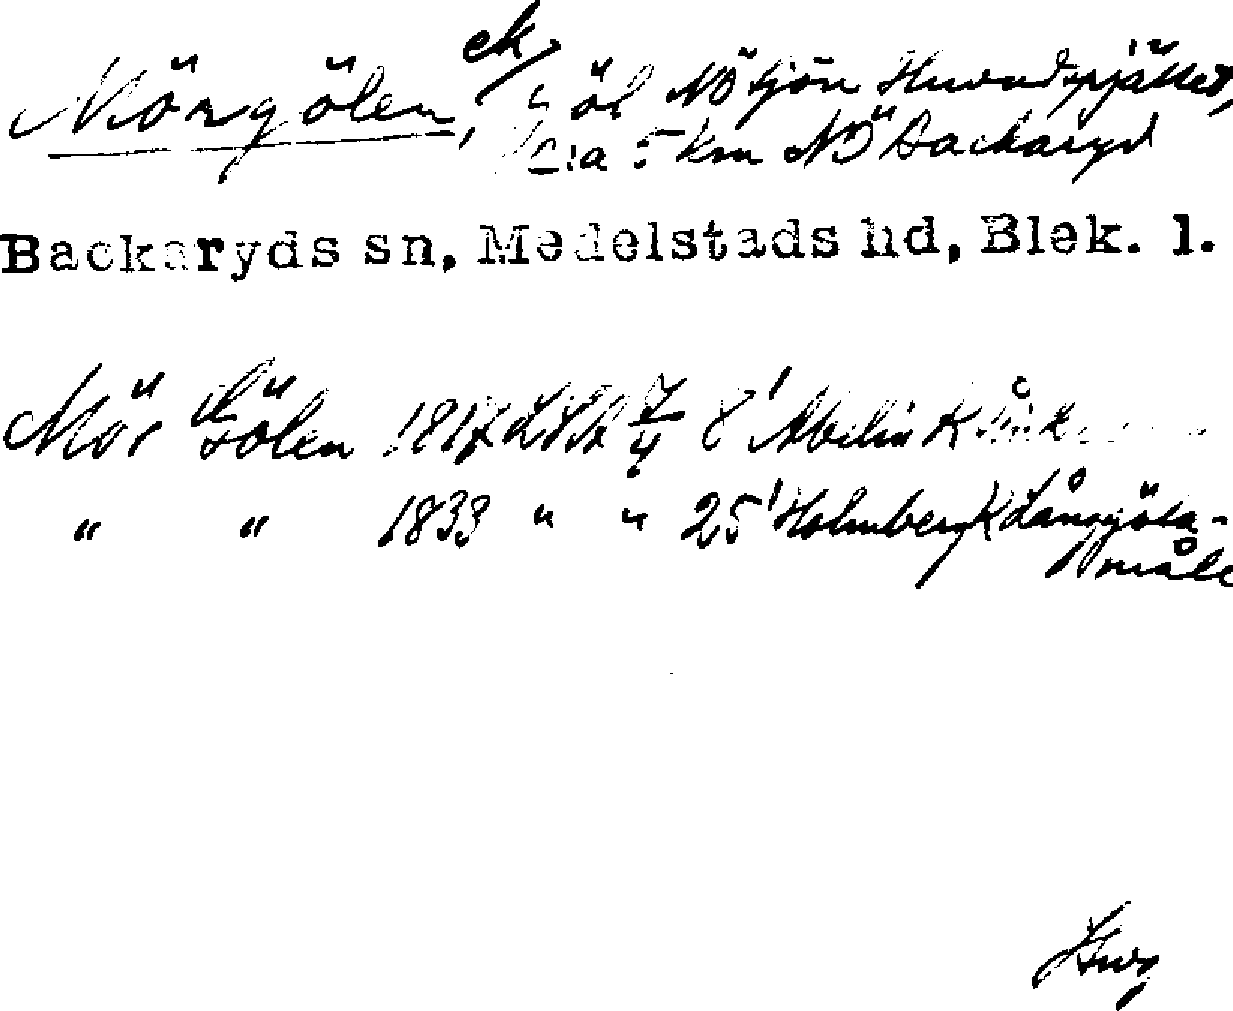 Mörgölen, ek/ göl NÖ tjön Huvudspjället,
c:a 5 km NÖ Backaryd
Backaryds sn, Medelstads hd, Blek. l.
Mör Gölen 1817 LSA 7/4 8' Abelin K
" " 1833 " " 25' Holmberg K Långgöla-
måla